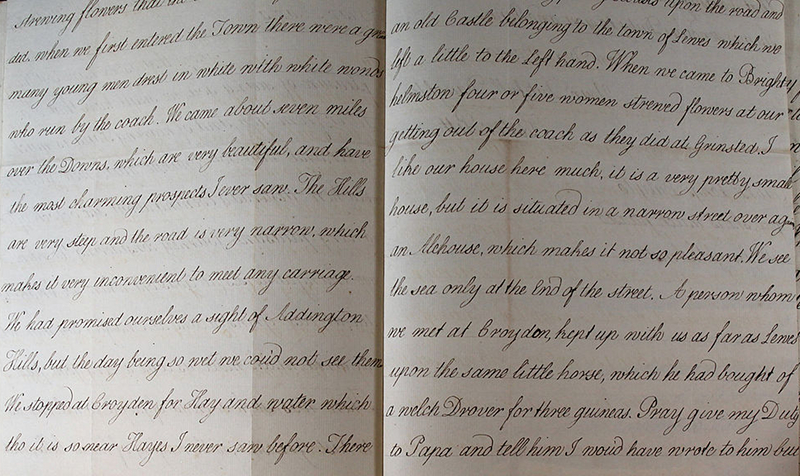 strewing flowers that the
did. when we first entered the Town there were a
many young men drest in white with white wonds
who run by the coach. We came about seven miles
over the Downs, which are very beautiful, and have
the most charming prospects I ever saw. The Hills
are very steep and the road is very narrow, which
makes it very inconvenient to meet any carriage.
We had promised ourselves a sight of Addington
Hills, but the day being so wet we coud not see them
We stopped at Croyden for Hay and water which
tho it is so near Hayes I never saw before. There
upon the road and
an old Castle belonging to the town of Lewes which we
left a little to the left hand. When we came to Bright
helmston four or five women strewed flowers at our
getting out of the coach as they did at Grinsted. I
like our house here much, it is a very pretty small
house, but it is situated in a narrow street over
an Alehouse, which makes it not so pleasant. We see
the sea only at the End of the street. A person whom
we met at Croydon, kept up with us as far as Lewes
upon the same little horse, which he had bought of
a welch Drover for three guineas. Pray give my Duty
to Papa and tell him I woud have wrote to him but